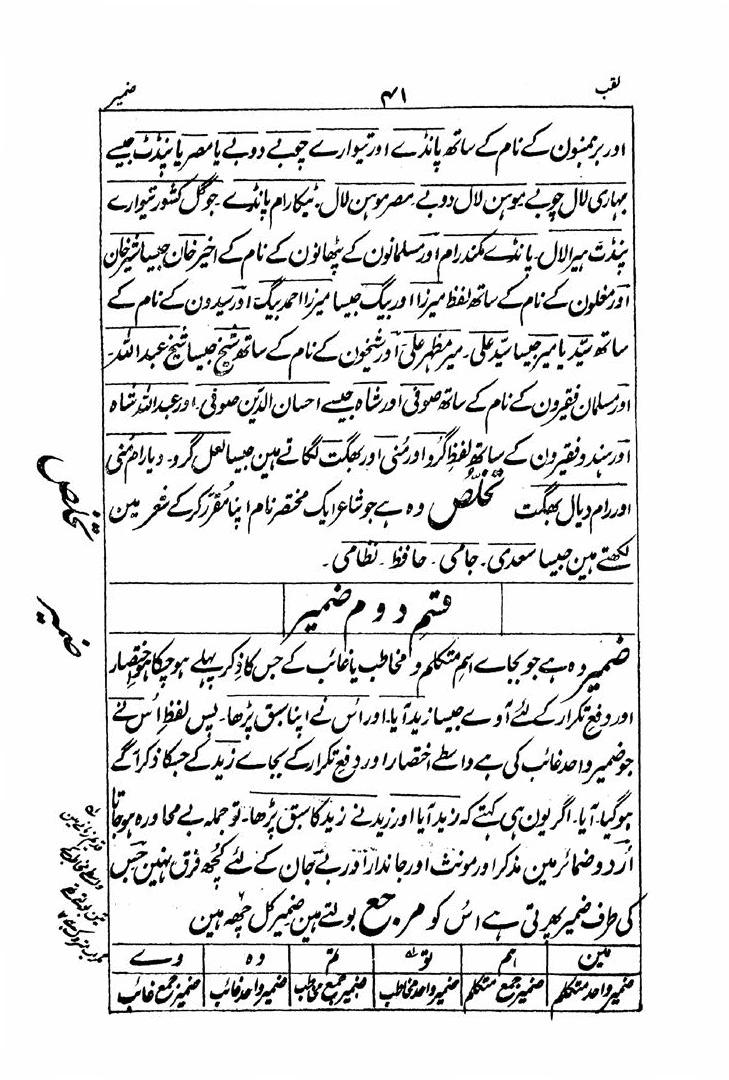 لقب ۴۱ ضمیر
اور برہمنون کے نام کے ساتھ پانڈے اور تیوارے چوبے دوبے یا مصر یا پنڈت جیسے
بہاری لال چوبے موہن لال دوبے۔ مصر موہن لال۔ ٹیکارام پانڈے۔ جوگل کشور تیوارے
پنڈت ہیرالال۔ پانڈے مکند رام اور مسلمانون کے پٹھانون کے نام کے اخیر خان جیسا شیر خان
اور مغلون کے نام کے ساتھ لفظ میرزا اور بیگ جیسا میرزا احمد بیگ اور سیدون کے نام کے
ساتھ سیّد یا میر جیسا سیّد علی۔ میر مظہر علی اور شیخون کے نام کے ساتھ شیخ جیسا شیخ عبداللہ۔
اور مسلمان فقیرون کے نام کے ساتھ صوفی اور شاہ جیسے احسان الدین صوفی۔ اور عبداللہ شاہ
اور ہندو فقیرون کے ساتھ لفظ گرو اور مُنی اور بھگت لگاتے ہین جیسا لعل گرو۔ دیارام مُنی
اور رام دیال بھگت تخلُّص وہ ہے جو شاعر ایک مختصر نام اپنا مقرّر کر کے شعر مین
لکھتے ہین جیسا سعدی۔ جامی۔ حافظ۔ نظامی۔
تخلص
قسمِ دوم ضمیر
ضمیر
ضمیر وہ ہے جو بجاے اسم متکلم و مخاطب یا غائب کے جس کا ذکر پہلے ہو چکا ہو اختصار
اور دفع تکرار کے لئے آوے جیسا زید آیا۔ اور اُس نے اپنا سبق پڑھا۔ پس لفظ اُس نے
جو ضمیر واحد غائب کی ہے واسطے اختصار اور دفع تکرار کے بجاے زید کے جسکا ذکر آگے
ہو گیا۔ آیا۔ اگر یون ہی کہتے کہ زید آیا اور زید نے زید کا سبق پڑھا۔ تو جملہ بے محاورہ ہو جاتا
اُردو ضمائر مین مذکر اور مونث اور جاندار اور بے جان کے لئے کچھ فرق نہین جس
کی طرف ضمیر پھرتی ہے اُس کو مرجع بولتے ہین ضمیر کل چھہ ہین
مین ہم تو تم وہ وے
ضمیر واحد متکلم ضمیر جمع متکلم ضمیر واحد مخاطب ضمیر جمع مخاطب ضمیر واحد غائب ضمیر جمع غائب